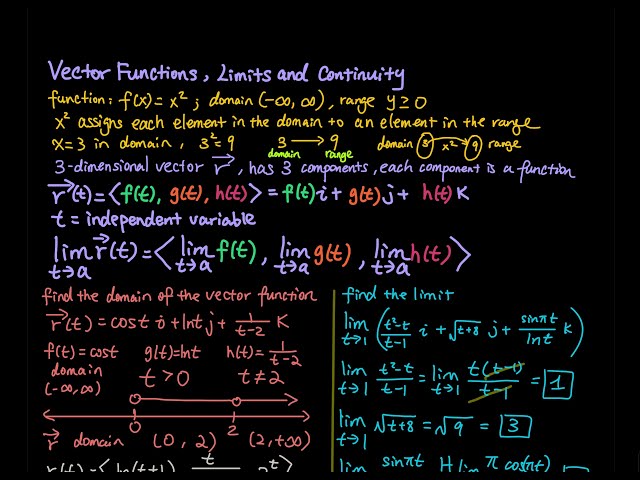 Vector Functions, Limits and Continuity
function: f(x) = x² ; domain (-∞, ∞), range y ≥ 0
x² assigns each element in the domain to an element in the range
x=3 in domain, 3²=9 3 → 9 domain 3 x² 9 range
domain range
3-dimensional vector r⃗, has 3 components, each component is a function
r⃗(t) = ⟨f(t), g(t), h(t)⟩ = f(t)i + g(t)j + h(t)K
t = independent variable
lim t→a r⃗(t) = ⟨lim t→a f(t), lim t→a g(t), lim t→a h(t)⟩
find the domain of the vector function
r⃗(t) = cost i + lnt j + 1/(t-2) K
f(t)=cost g(t)=lnt h(t)=1/(t-2)
domain
(-∞,∞) t>0 t≠2
0 2
r⃗ domain (0, 2) (2, +∞)
r(t) = ⟨ln(t+1), t
find the limit
lim t→1 ((t²-t)/(t-1) i + √(t+8) j + sinπt/lnt K)
lim t→1 (t²-t)/(t-1) = lim t→1 t(t-1)/(t-1) = 1
lim t→1 √(t+8) = √9 = 3
lim sinπt H lim π cos(πt)